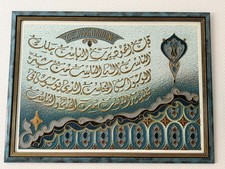 قل أعوذ برب الناس ملك
الناس إله الناس من شر
الوسواس الخناس الذي يوسوس
في صدور الناس من الجنة والناس